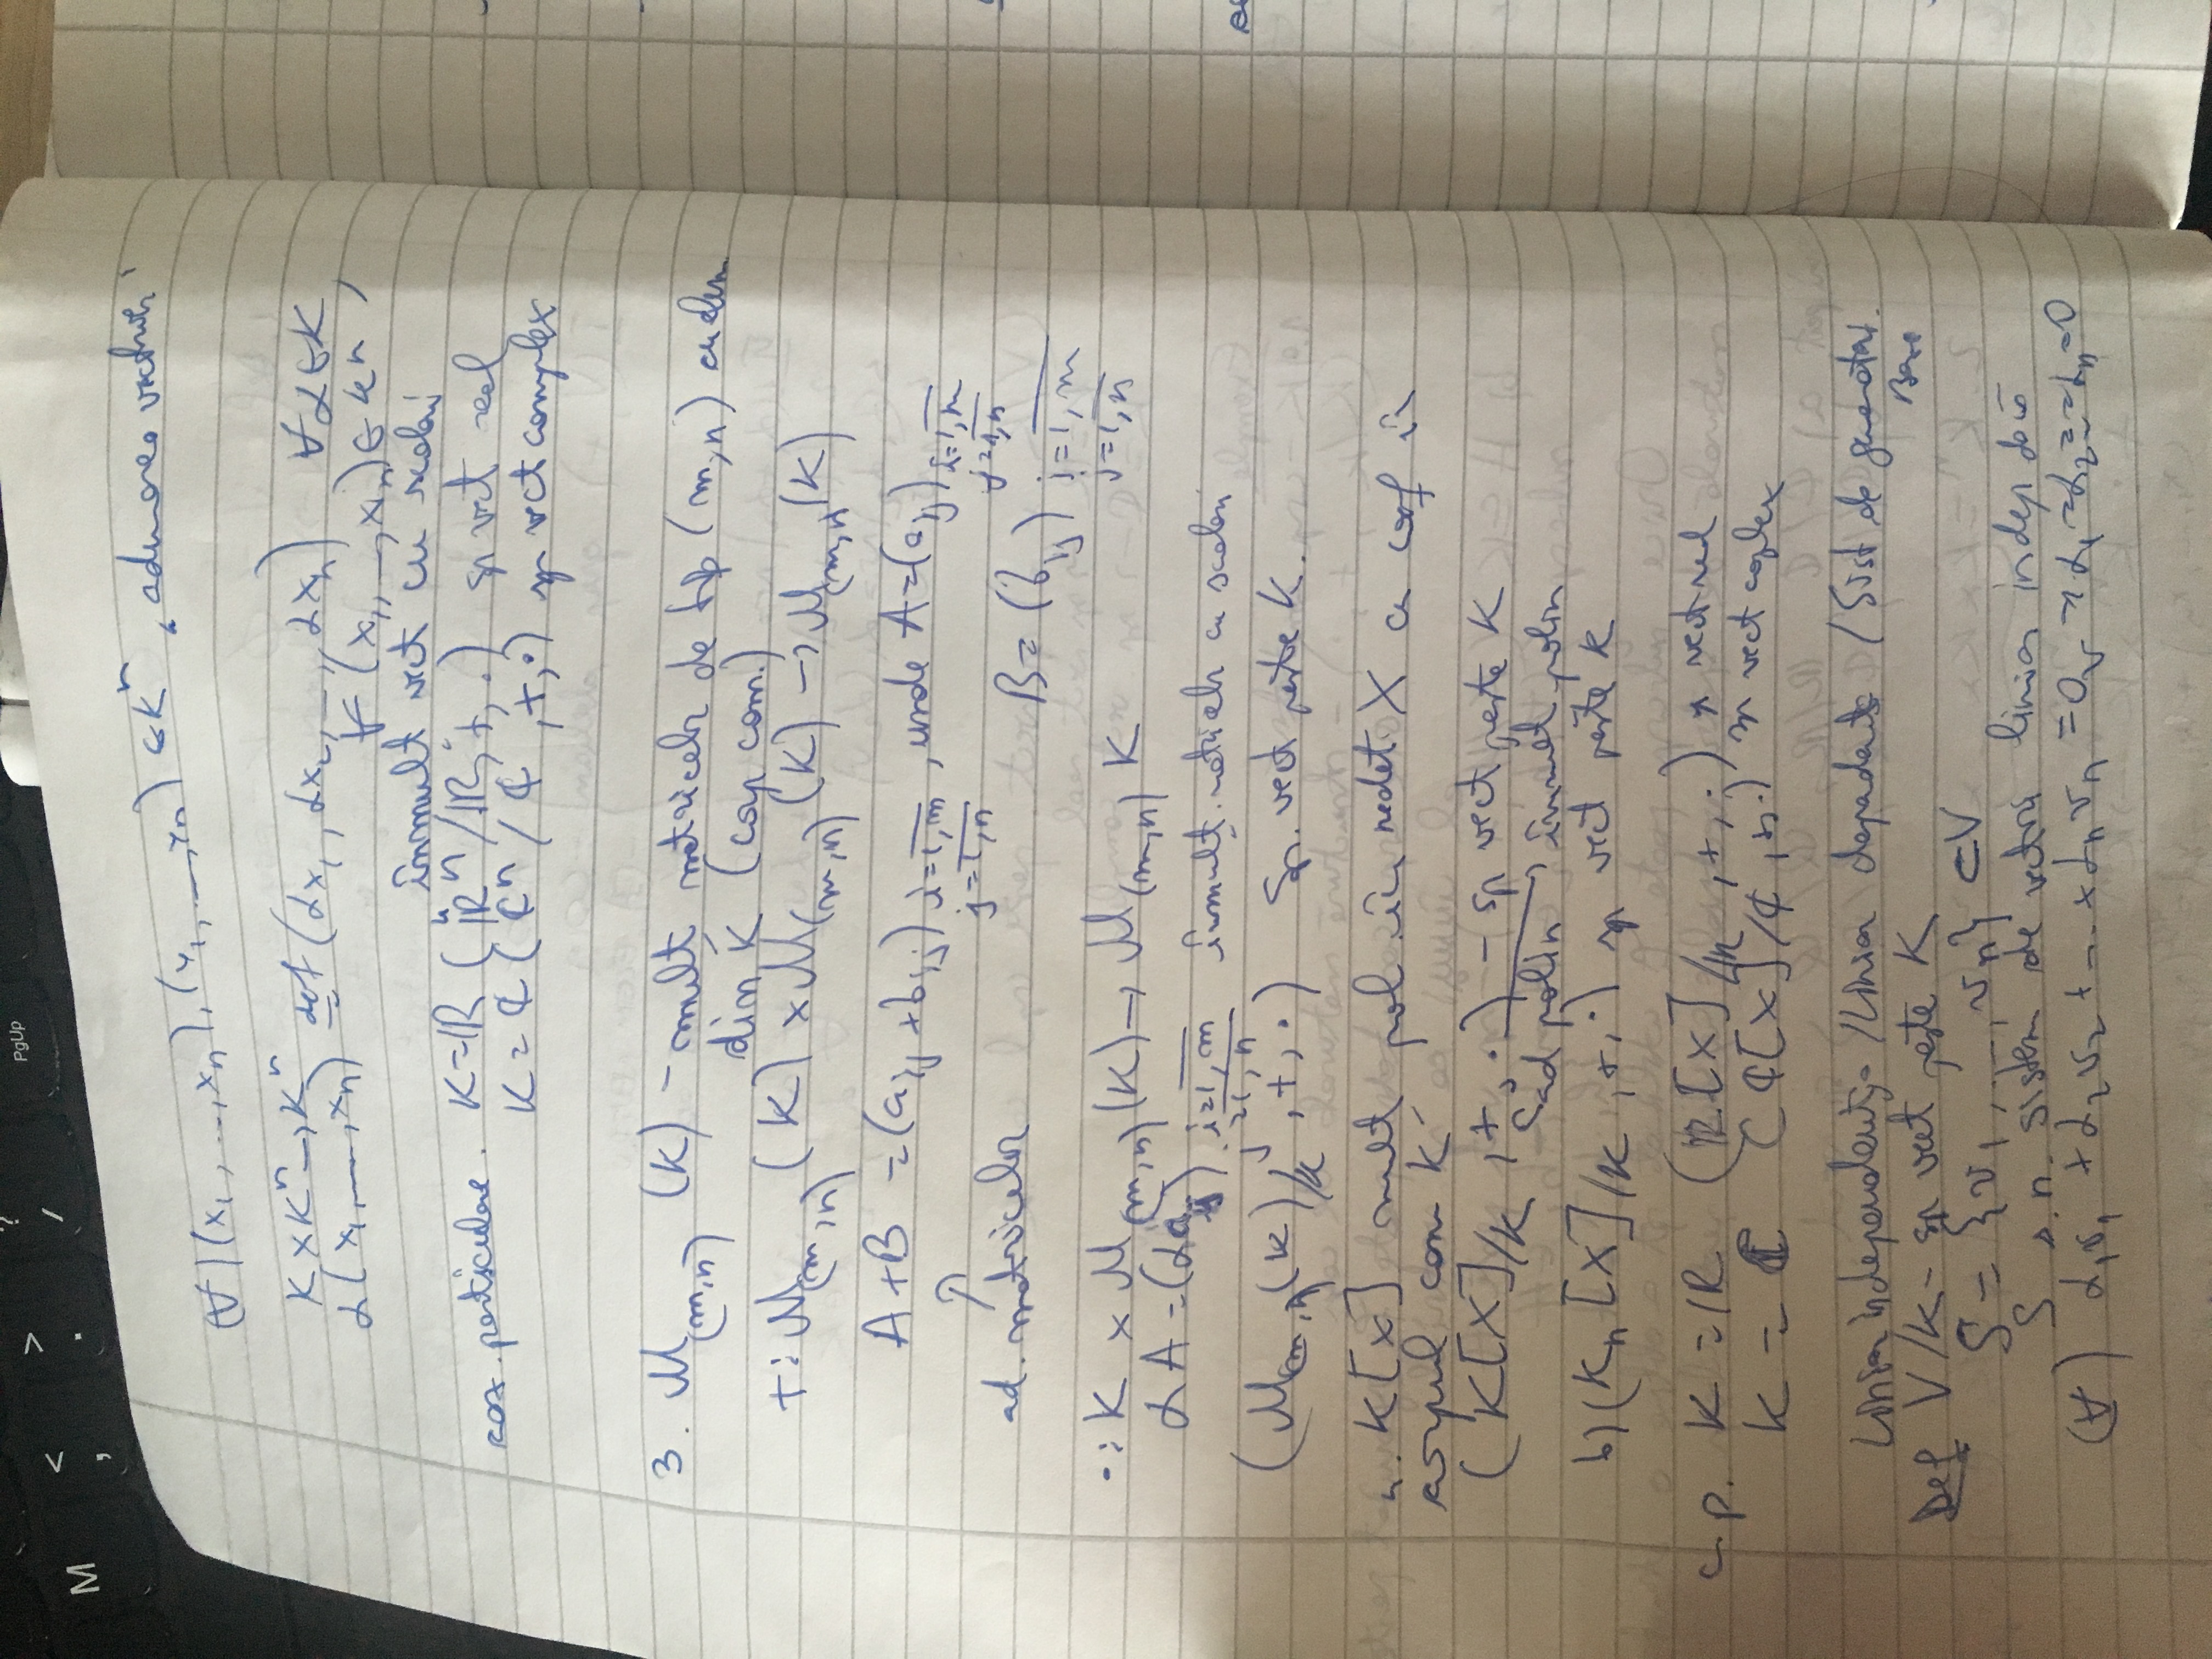 M < , > . ? / PgUp
(∀) (x₁, ..., xₙ), (y₁, ..., yₙ) ∈ Kⁿ, adunarea vectorilor
K × Kⁿ → Kⁿ
α(x₁, ..., xₙ) =def (αx₁, αx₂, ..., αxₙ) ∀ α ∈ K,
∀ (x₁, ..., xₙ) ∈ Kⁿ
înmult vect cu scalari
caz. particulare. K = ℝ (ℝⁿ/ℝ, +, ·) sp vect real
K = ℂ (ℂⁿ/ℂ, +, ·) sp vect complex
3. M(m,n) (K) - mulț matricelor de tip (m,n) cu elem
din K (corp com.)
+: M(m,n) (K) × M(m,n) (K) → M(m,n) (K)
A + B = (aij + bij) i=1,m , unde A = (aij) i=1,m
j=1,n j=1,n
ad. matricelor B = (bij) i=1,m
j=1,n
·: K × M(m,n) (K) → M(m,n) K
αA = (αaij) i=1,m înmulț. matricelor cu scalari
j=1,n
(M(m,n) (K)/K, +, ·) Sp. vect peste K.
4. K[X] mult pol. în nedet. X cu coef în
corpul com K
(K[X]/K, +, ·) - sp vect peste K
ad polin înmult polin
b) (Kn [X]/K, +, ·) sp vect peste K
c.p. K = ℝ (ℝ[X]/ℝ, +, ·) sp vect real
K = ℂ (ℂ[X]/ℂ, +, ·) sp vect coplex
Liniar independență / Liniar dependență / Sist de generatori.
Baze
Def V/K - sp vect peste K
S = {v₁, ..., vₙ} ⊂ V
S s.n. sistem de vectori liniar indep dacă
(∀) α₁v₁ + α₂v₂ + ... + αₙvₙ = 0ᵥ ⇒ α₁ = α₂ = ... = αₙ = 0